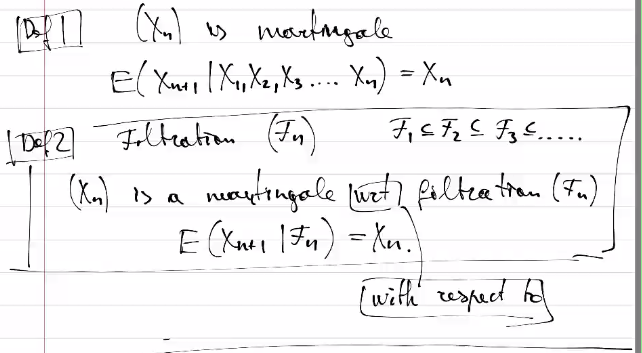 Def 1 (Xn) is martingale
E(Xn+1 | X1, X2, X3 .... Xn) = Xn
Def 2 Filtration (Fn) F1 ⊆ F2 ⊆ F3 ⊆ .....
(Xn) is a martingale wrt filtration (Fn)
E(Xn+1 | Fn) = Xn.
with respect to